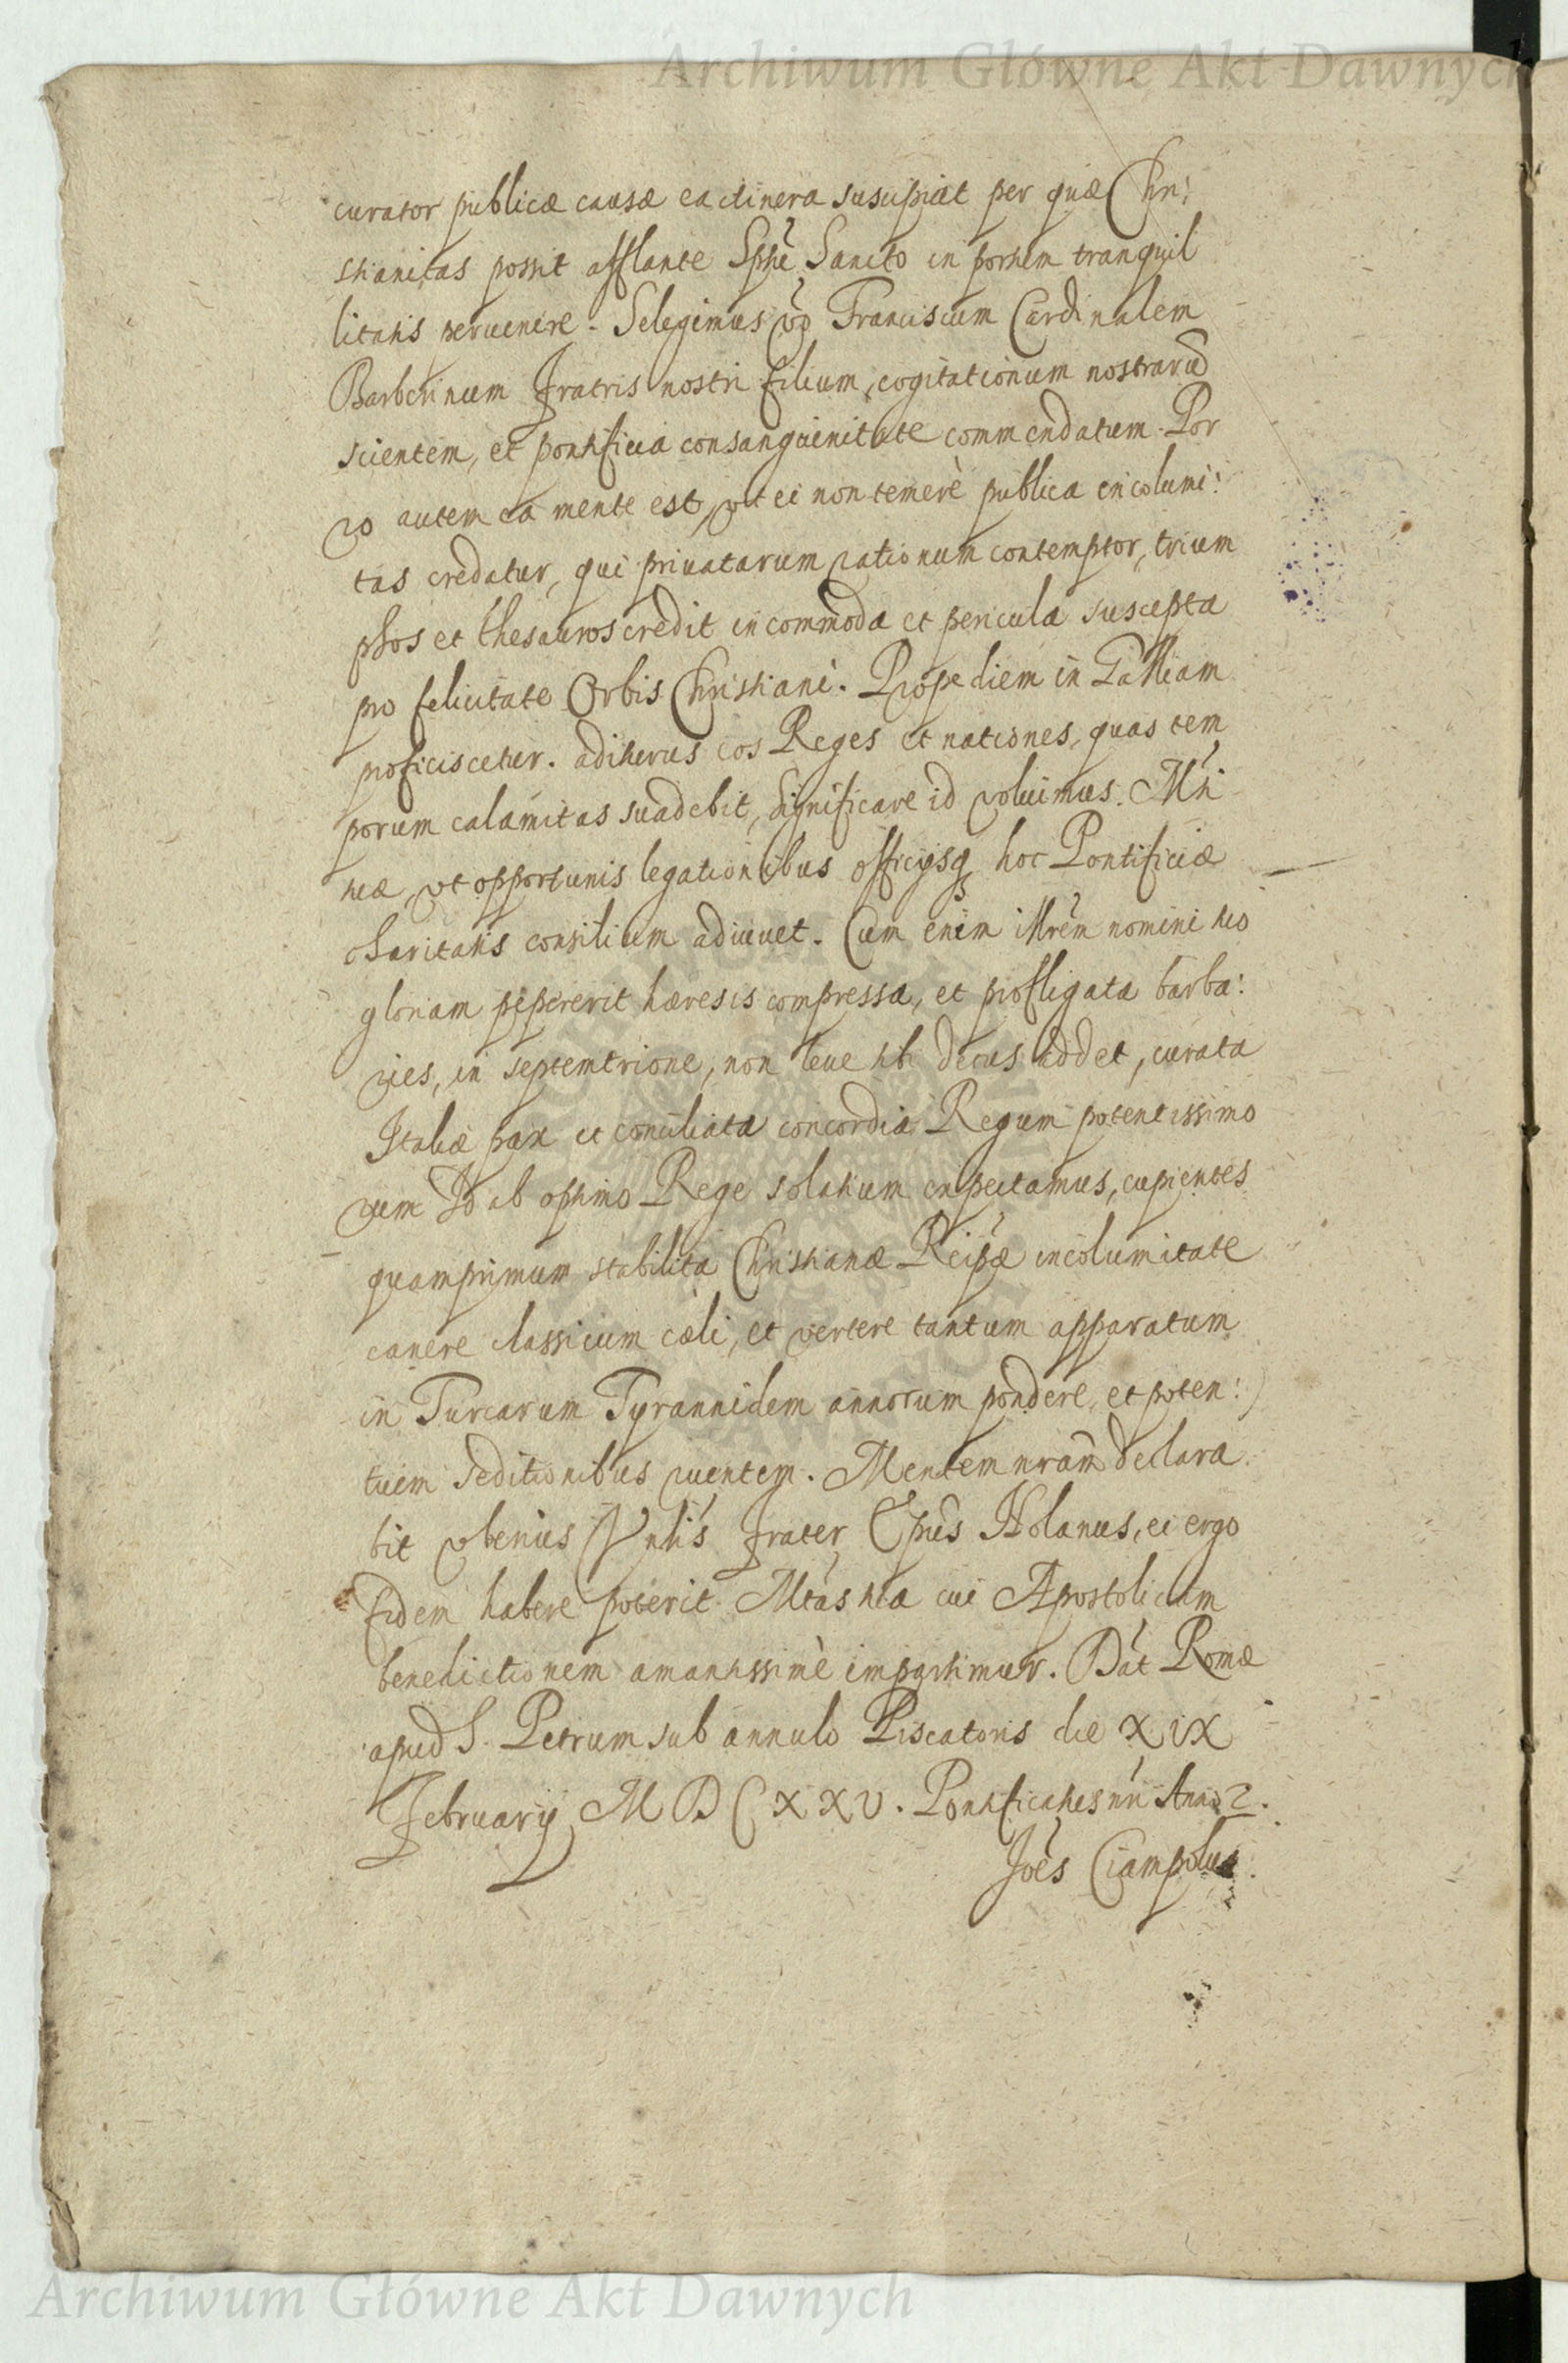 Archiwum Główne Akt Dawnych
curator publicæ causæ ea itinera suscipiat per quæ Chri:
stianitas possit afflante Spũ Sancto in portum tranquil
litatis pervenire. Selegimus vo Franciscum Cardinalem
Barberinum Fratris nostri filium, cogitationum nostrarũ
scientem, et pontificia consanguinitate commendatum. Por
ro autem ea mente est, vt ei non temerè publica incolumi:
tas credatur, qui privatarum rationum contemptor, trium
phos et thesauros credit incommoda et pericula suscepta
pro felicitate Orbis Christiani. Propediem in Galliam
proficiscetur. aditurus eos Reges et nationes, quas tem
porum calamitas suadebit, significare id voluimus. Mti
tuæ, vt opportunis legationibus officijsq hoc Pontificiæ
charitatis consilium adiuvet. Cum enim illrem nomini tuo
gloriam pepererit hæresis compressa, et profligata barba:
ries, in septemtrione, non leue tibi decus addet, curata
Italiæ pax et conciliata concordia Regum potentissimo
rum Id ab optimo Rege solatium expectamus, cupientes
quamprimum stabilita Christianæ Reipæ incolumitate
canere classicum cæli, et vertere tantum apparatum
in Turcarum Tyrannidem annorum pondere, et poten:
tuem seditionibus ruentem. Mentem nram declara
bit vberius Vnlis Frater Epus Nolanus, ei ergo
fidem habere poterit Mtas tua cui Apostolicam
benedictionem amantissimè impartimur. Dat Romæ
apud S. Petrum sub annulo Piscatoris die XIX
February M D C X X V. Pontificatus nri Anno 2.
Joes Ciampolus.
Archiwum Główne Akt Dawnych